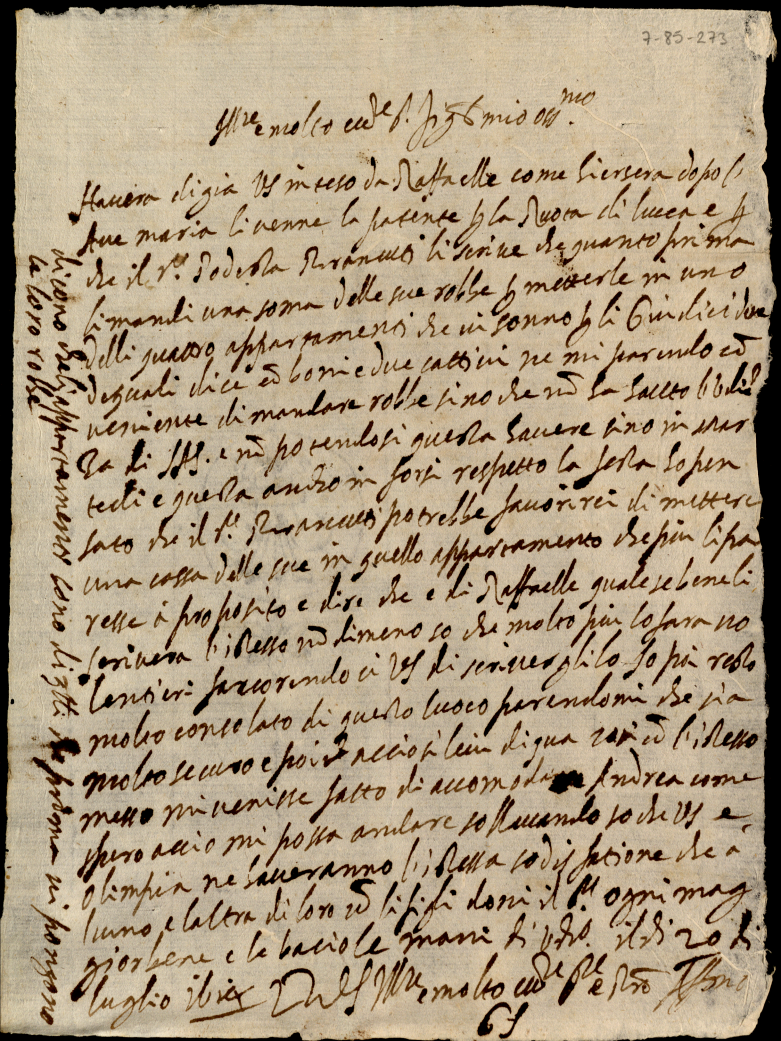 7-85-273
Ill.re e molto ecc.te S. mio oss.mo
Havera di gia VS inteso da Raffaelle come hiersera dopo l'
Ave maria li venne la patente p la Ruota di lucca e p
che il s.r Podesta li scrive che quanto prima
li mandi una soma delle sue robbe p metterle in uno
delli quattro appartamenti che vi sonno p li Giudici due
de quali dice boni e due cattivi ne mi parendo
veniente di mandare robbe sino che nō ha hauto
za di e nō potendosi questa havere sino in mar
tedi e questa ancho in forsi respetto la festa ho pen
sato che il s.r potrebbe favorirci di mettere
una cassa delle sue in quello appartamento che piu li pa
resse à proposito e dire che e di Raffaelle quale se bene li
scrivera l'istesso nō dimeno so che molto piu lo fara vo
lentieri favorendoci VS di scriverglilo Io poi resto
molto consolato di questo luoco parendomi che sia
molto securo e poi acciosi di qua l'istesso
messo mi venisse fatto di accomodare Andrea come
spero accio mi possa andare sollevando so che VS e
Olimpia ne haveranno l'istessa sodisfatione che à
luno e laltra di loro cō li figli doni il S.r ogni mag
gior bene e le bacio le mani di il di 20 di
luglio
Di VS Ill.re e molto ecc.te
dicono che li appartamenti sono di tti che prima vi pongono
le loro robbe